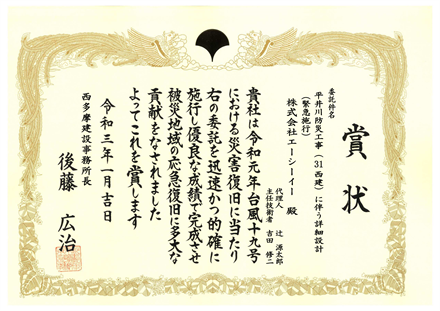 賞状
委託件名
平井川防災工事（31西建）に伴う詳細設計
（緊急施行）
株式会社エーシーイー 殿
代理人 辻 源太郎
主任技術者 吉田 修二
貴社は令和元年台風十九号
における災害復旧に当たり
右の委託を迅速かつ的確に
施行し優良な成績で完成させ
被災地域の応急復旧に多大な
貢献をなされました
よってこれを賞します
令和三年一月吉日
西多摩建設事務所長
後藤 広治